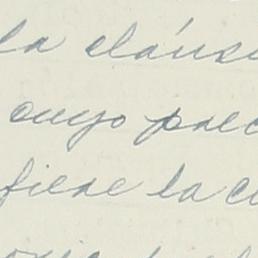 la cláusu
cuyo prec
fiere la c